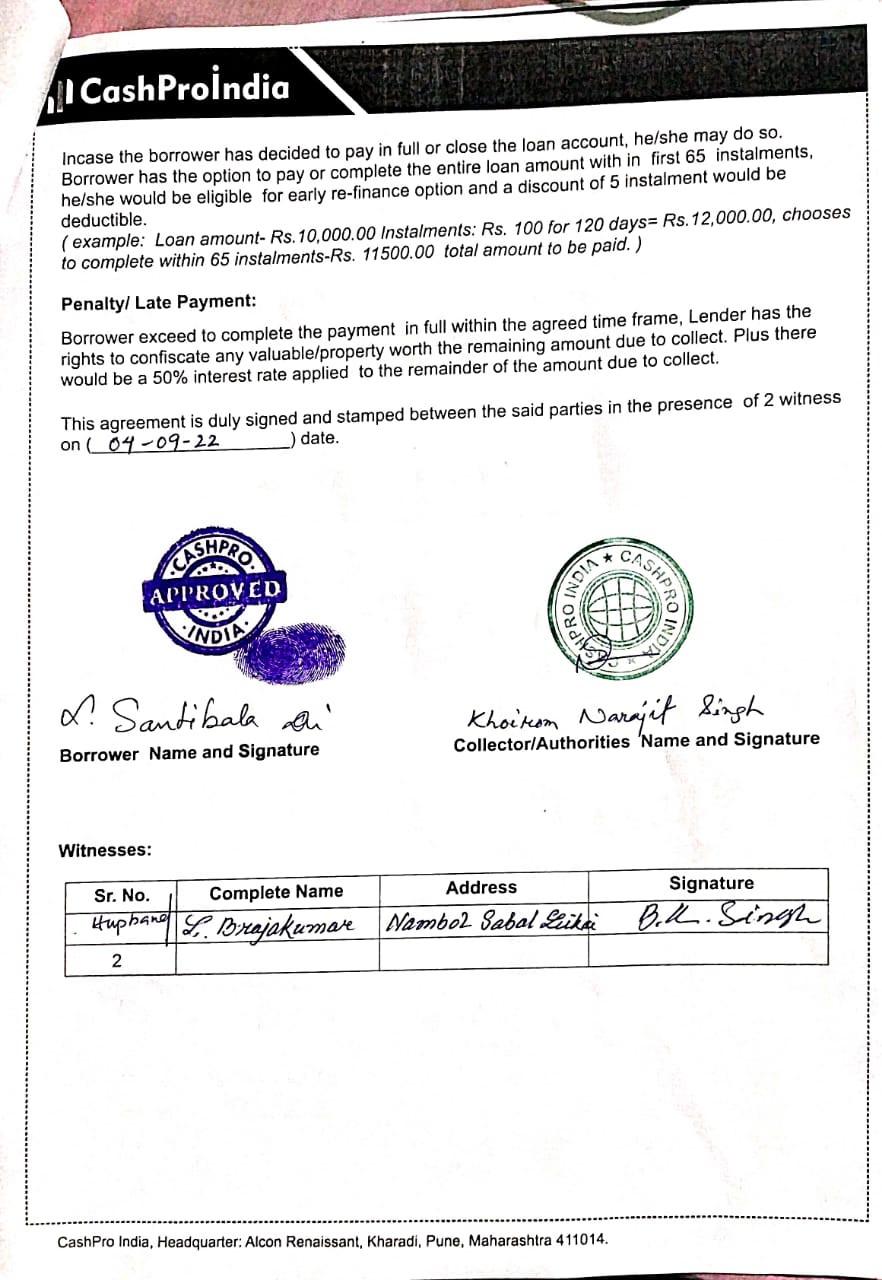 CashProIndia
Incase the borrower has decided to pay in full or close the loan account, he/she may do so.
Borrower has the option to pay or complete the entire loan amount with in first 65 instalments,
he/she would be eligible for early re-finance option and a discount of 5 instalment would be
deductible.
( example: Loan amount- Rs.10,000.00 Instalments: Rs. 100 for 120 days= Rs.12,000.00, chooses
to complete within 65 instalments-Rs. 11500.00 total amount to be paid. )
Penalty/ Late Payment:
Borrower exceed to complete the payment in full within the agreed time frame, Lender has the
rights to confiscate any valuable/property worth the remaining amount due to collect. Plus there
would be a 50% interest rate applied to the remainder of the amount due to collect.
This agreement is duly signed and stamped between the said parties in the presence of 2 witness
on ( 04-09-22 ) date.
CASHPRO
APPROVED
INDIA
CASHPRO INDIA ★ CASHPRO INDIA
L. Santibala Khoirom Narajit Singh
Borrower Name and Signature Collector/Authorities Name and Signature
Witnesses:
Sr. No. Complete Name Address Signature
Hupband L. Brajakumar Nambol Sabal Leikai B.K. Singh
2
CashPro India, Headquarter: Alcon Renaissant, Kharadi, Pune, Maharashtra 411014.